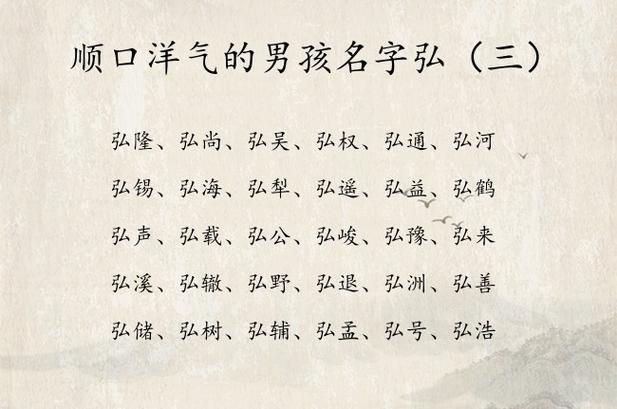 顺口洋气的男孩名字弘（三）
弘隆、弘尚、弘吴、弘权、弘通、弘河
弘锡、弘海、弘犁、弘遥、弘益、弘鹤
弘声、弘载、弘公、弘峻、弘豫、弘来
弘溪、弘辙、弘野、弘退、弘洲、弘善
弘储、弘树、弘辅、弘孟、弘号、弘浩